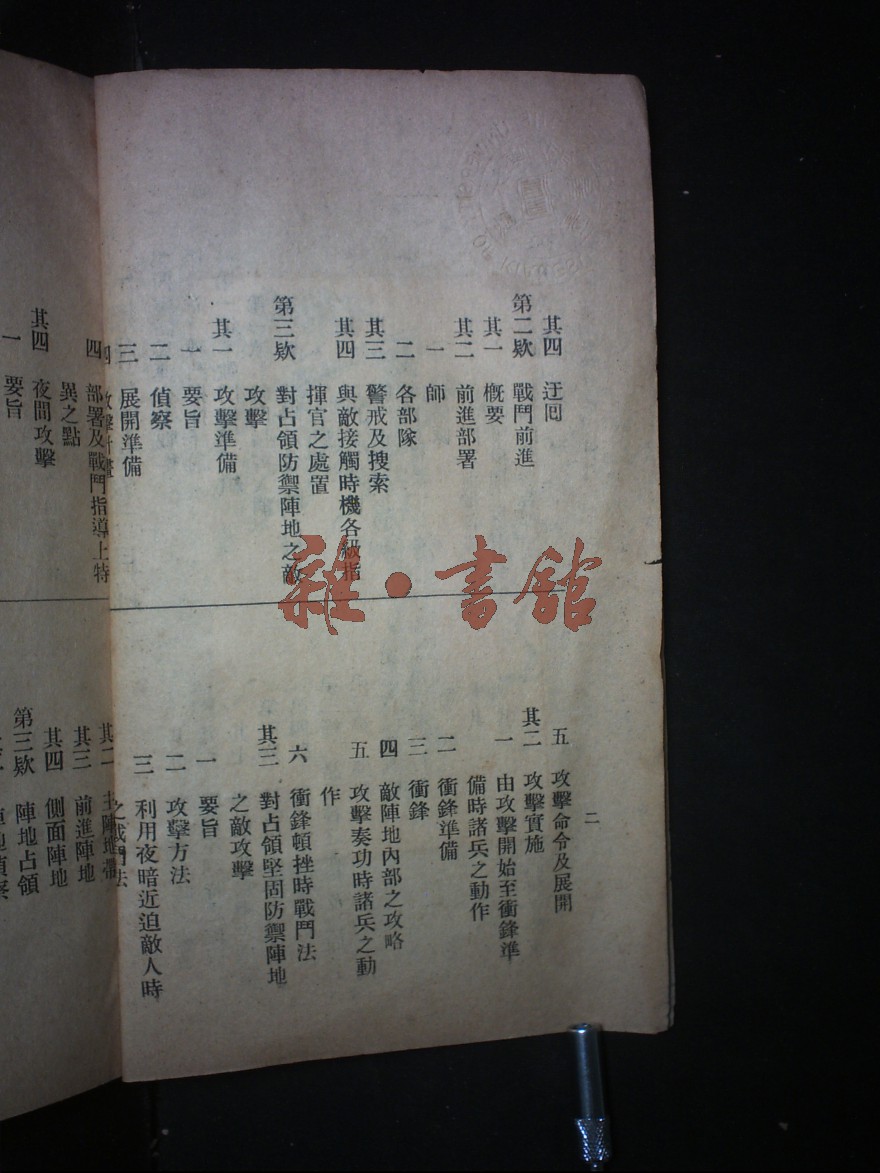 其四 迂回
第二欵 戰鬥前進
其一 槪要
其二 前進部署
一 師
二 各部隊
其三 警戒及搜索
其四 與敵接觸時機各級指
揮官之處置
第三欵 對占領防禦陣地之敵
攻擊
其一 攻擊準備
一 要旨
二 偵察
三 展開準備
四 攻擊計畫
五 攻擊命令及展開
其二 攻擊實施
一 由攻擊開始至衝鋒準
備時諸兵之動作
二 衝鋒準備
三 衝鋒
四 敵陣地內部之攻略
五 攻擊奏功時諸兵之動
作
六 衝鋒頓挫時戰鬥法
其三 對占領堅固防禦陣地
之敵攻擊
一 要旨
二 攻擊方法
三 利用夜暗近迫敵人時
之戰鬥法
二
四 部署及戰鬥指導上特
異之點
其四 夜間攻擊
一 要旨
其二 主陣地帶
其三 前進陣地
其四 側面陣地
第三欵 陣地占領
陣地偵察
雜·書館